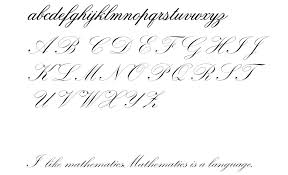 abcdefghijklmnopqrstuvwxyz
A B C D E F G H I J
K L M N O P Q R S T
U V W X Y Z
I like mathematics.Mathematics is a language.